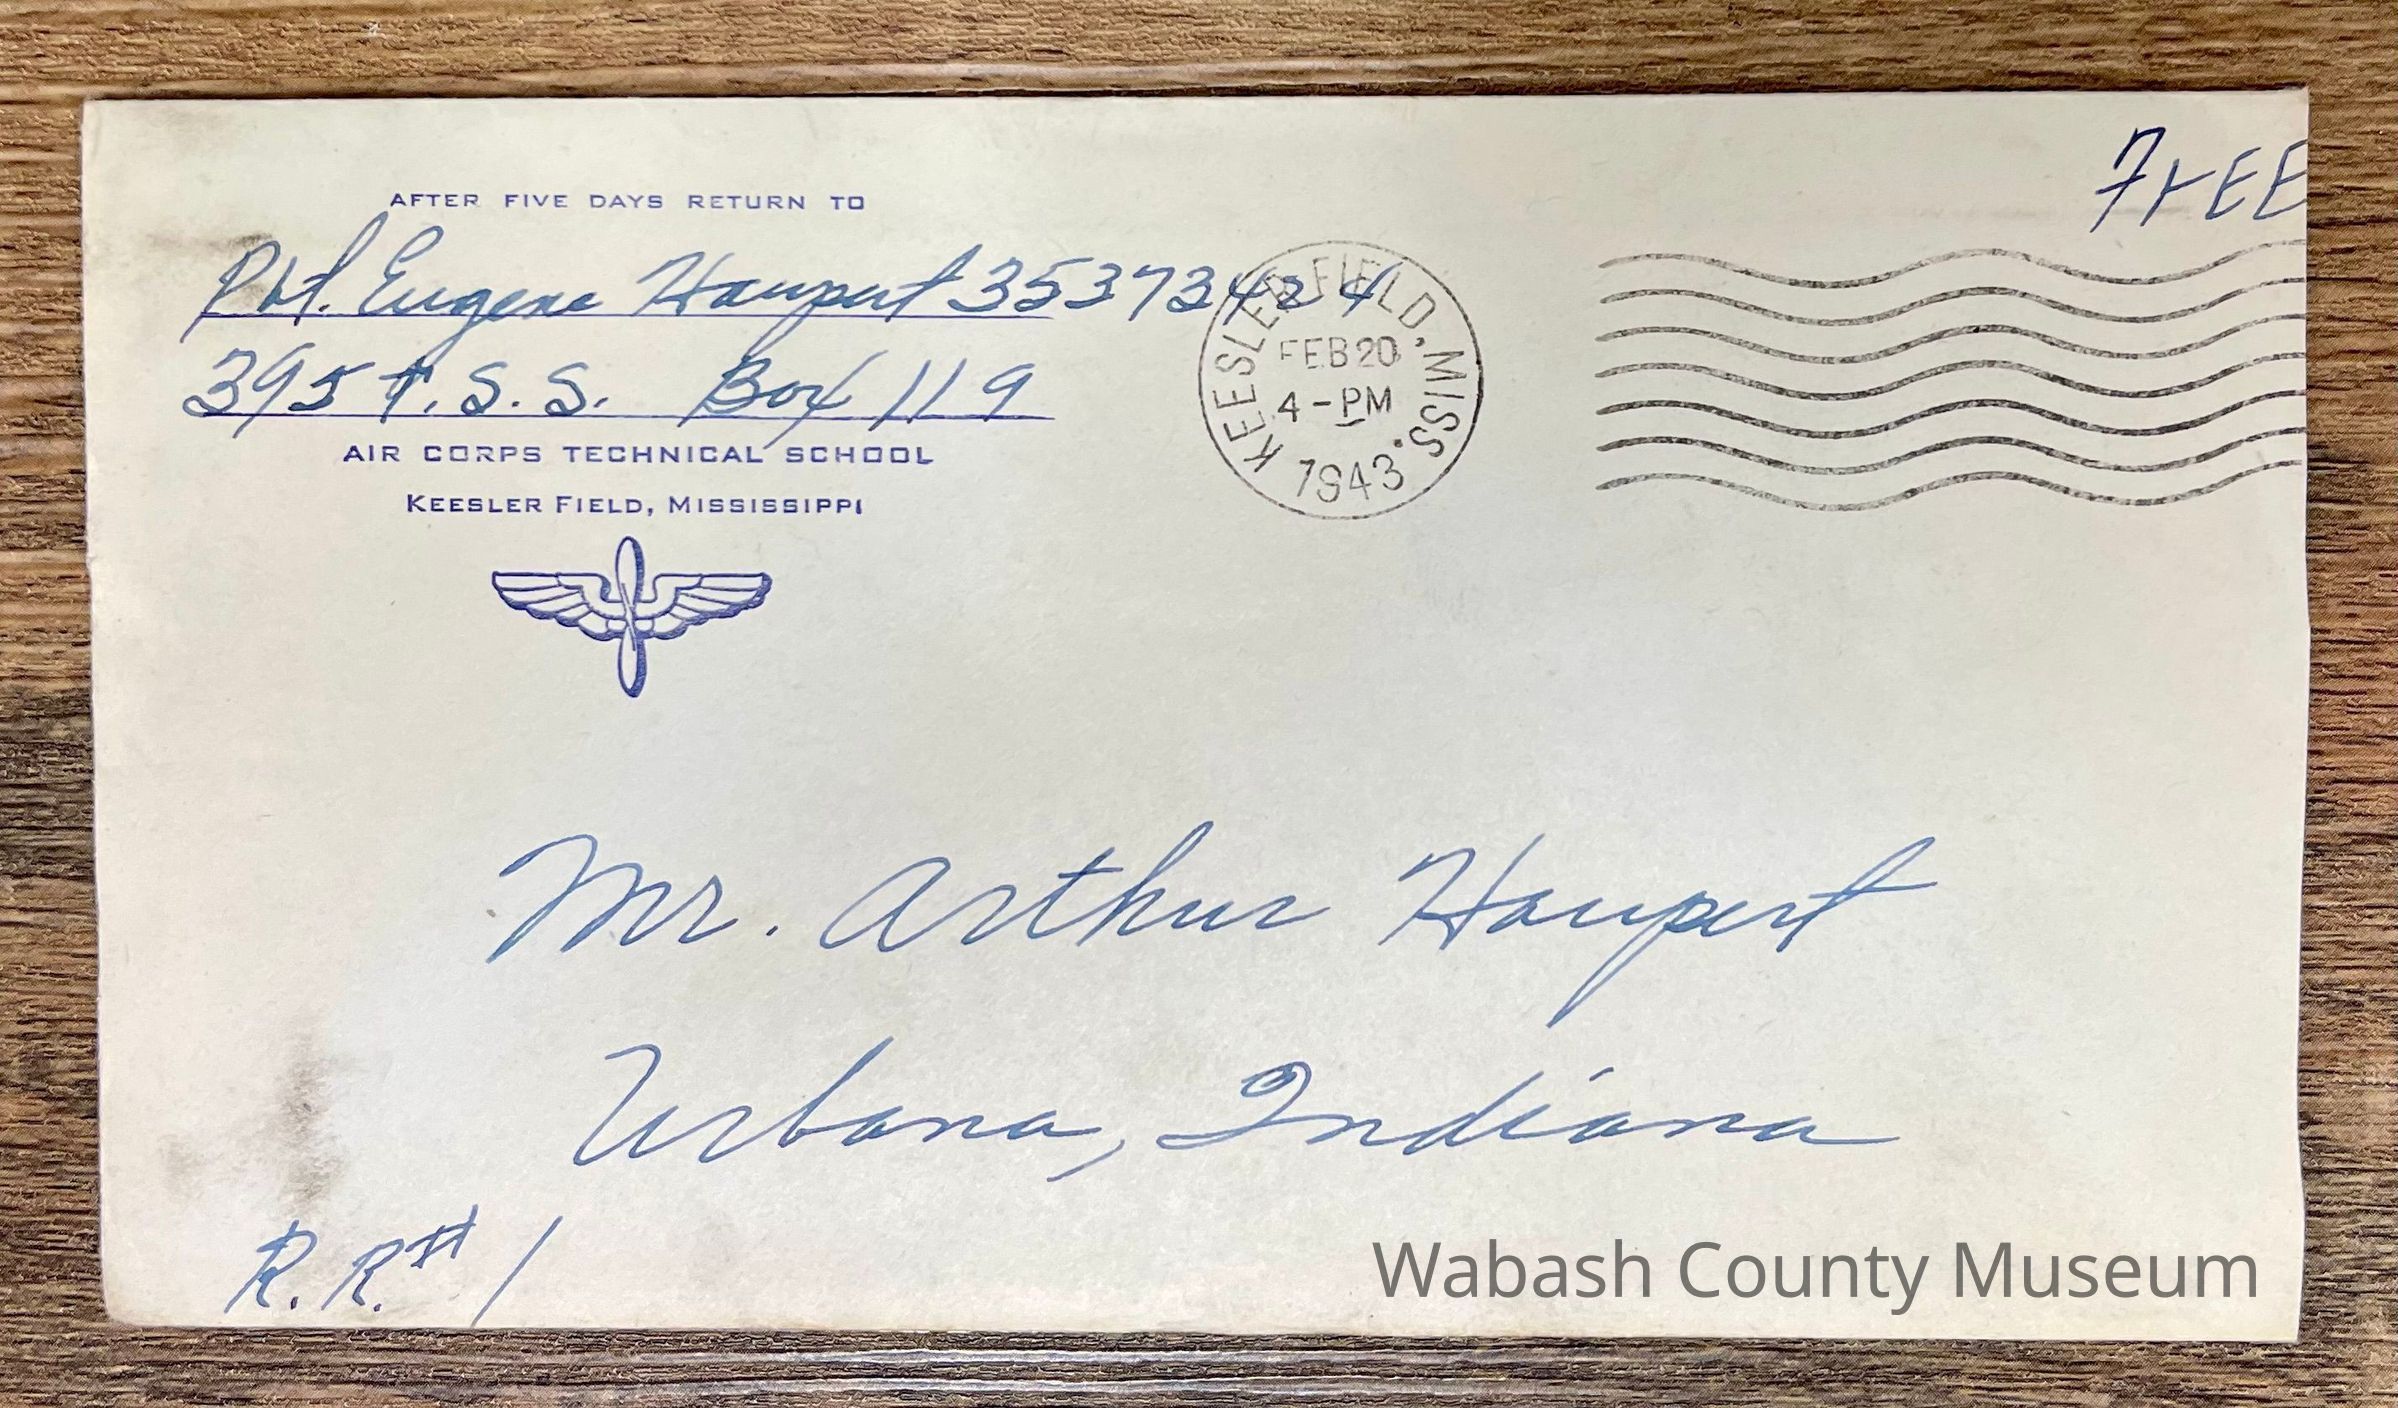 FrEE
AFTER FIVE DAYS RETURN TO
Pvt. Eugene Haupert 35373424
395 T.S.S. Box 119
AIR CORPS TECHNICAL SCHOOL
KEESLER FIELD, MISSISSIPPI
KEESLER FIELD, MISS.
FEB 20
4-PM
1943
Mr. Arthur Haupert
Urbana, Indiana
R.R.# 1
Wabash County Museum